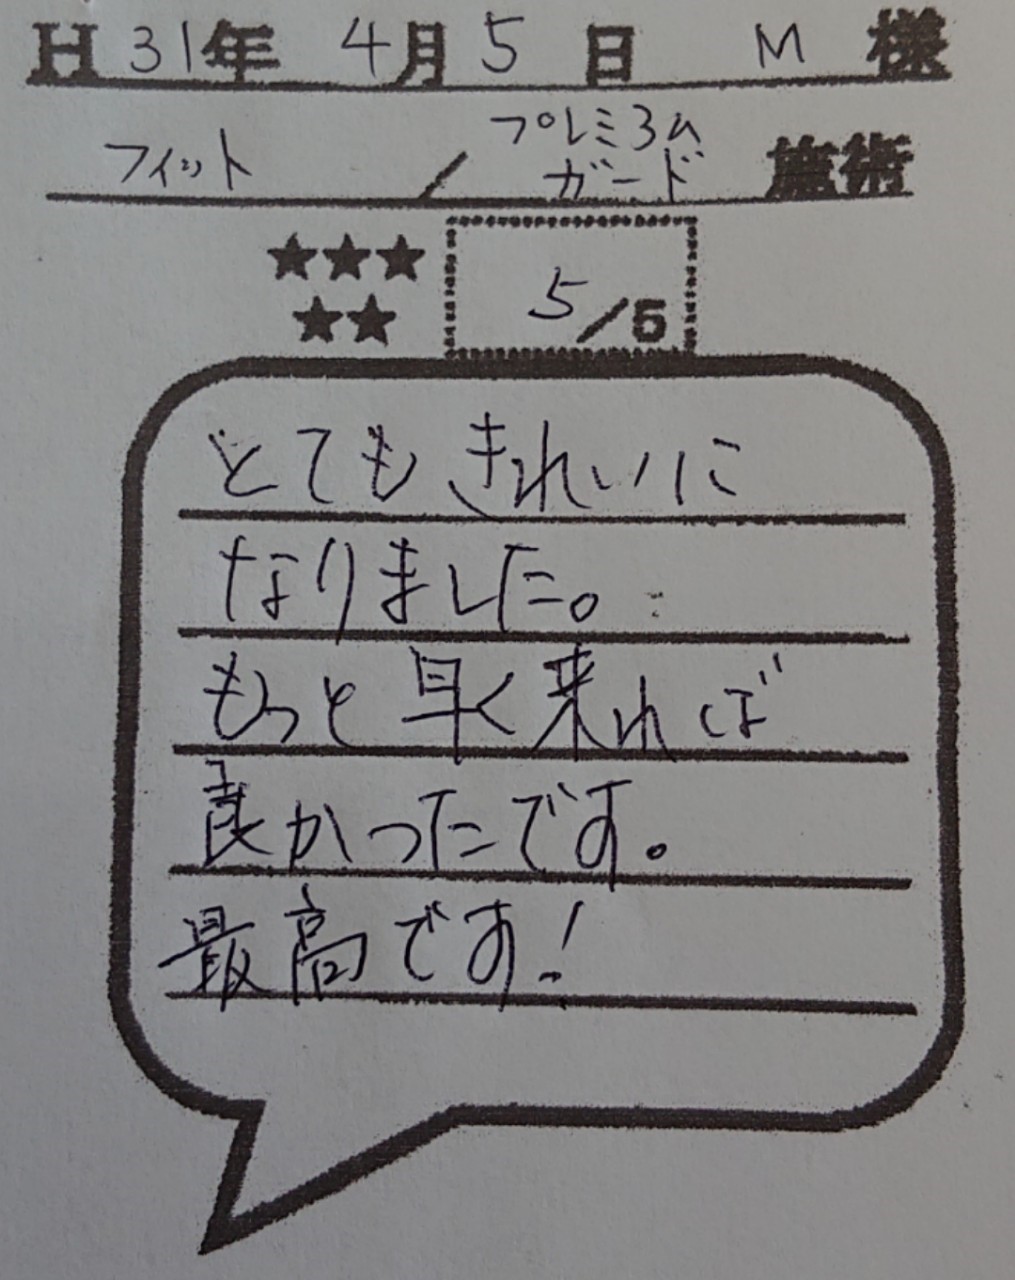 H31年 4月5日 M様
フィット / プレミヨム
ガード 施術
★★★
★★ 5/5
とてもきれいに
なりました。
もっと早く来れば
良かったです。
最高です!